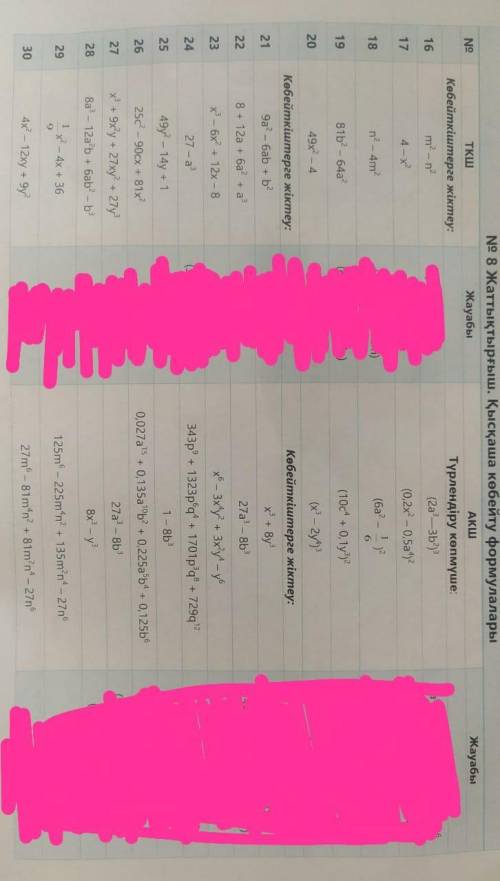 № 8 Жаттықтырғыш. Қысқаша көбейту формулалары
№ ТКШ Жауабы АКШ Жауабы
Көбейткіштерге жіктеу: Түрлендіру көпмүше:
16 m² – n² (2a³ – 3b²)³
17 4 – x² (0,2x² – 0,5a⁴)²
18 n² – 4m² (6a² – 1/6)²
19 81b² – 64a² (10c⁴ + 0,1y³)²
20 49x² – 4 (x³ – 2y⁴)³
Көбейткіштерге жіктеу: Көбейткіштерге жіктеу:
21 9a² – 6ab + b² x³ + 8y³
22 8 + 12a + 6a² + a³ 27a³ – 8b³
23 x³ – 6x² + 12x – 8 x⁶ – 3x⁴y² + 3x²y⁴ – y⁶
24 27 – a³ 343p⁹ + 1323p⁶q⁴ + 1701p³q⁸ + 729q¹²
25 49y² – 14y + 1 1 – 8b³
26 25c² – 90cx + 81x² 0,027a¹⁵ + 0,135a¹⁰b² + 0,225a⁵b⁴ + 0,125b⁶
27 x³ + 9x²y + 27xy² + 27y³ 27a³ – 8b³
28 8a³ – 12a²b + 6ab² – b³ 8x³ – y³
29 1/9 x² – 4x + 36 125m⁶ – 225m⁴n² + 135m²n⁴ – 27n⁶
30 4x² – 12xy + 9y² 27m⁶ – 81m⁴n² + 81m²n⁴ – 27n⁶